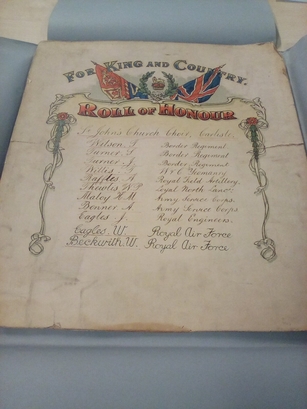 FOR KING AND COUNTRY.
ROLL OF HONOUR
St Johns Church Choir, Carlisle.
Nelson. J. Border Regiment
Turner. G. Border Regiment
Turner. J. Border Regiment
W & C Yeomanry
Raffles. A. Royal Field Artillery.
Thewlis W.P. Loyal North Lancs.
Maley H.M. Army Service Corps.
Bonner. A. Army Service Corps
Eagles. J. Royal Engineers.
Eagles W. Royal Air Force
Beckwith W. Royal Air Force